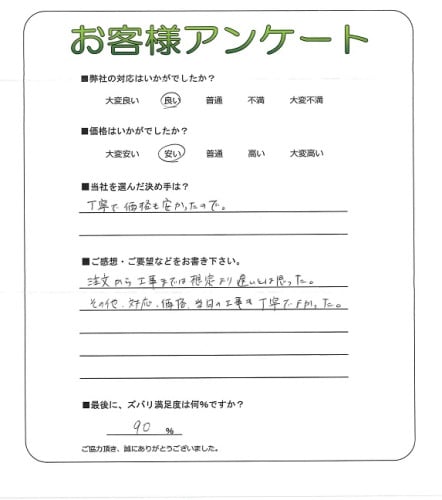 お客様アンケート
■弊社の対応はいかがでしたか?
大変良い 良い 普通 不満 大変不満
■価格はいかがでしたか?
大変安い 安い 普通 高い 大変高い
■当社を選んだ決め手は?
丁寧で価格も安かったので。
■ご感想・ご要望などをお書き下さい。
注文から工事までは想定より遅いとは思った。
その他、対応、価格、当日の工事も丁寧で良かった。
■最後に、ズバリ満足度は何%ですか?
90 %
ご協力頂き、誠にありがとうございました。